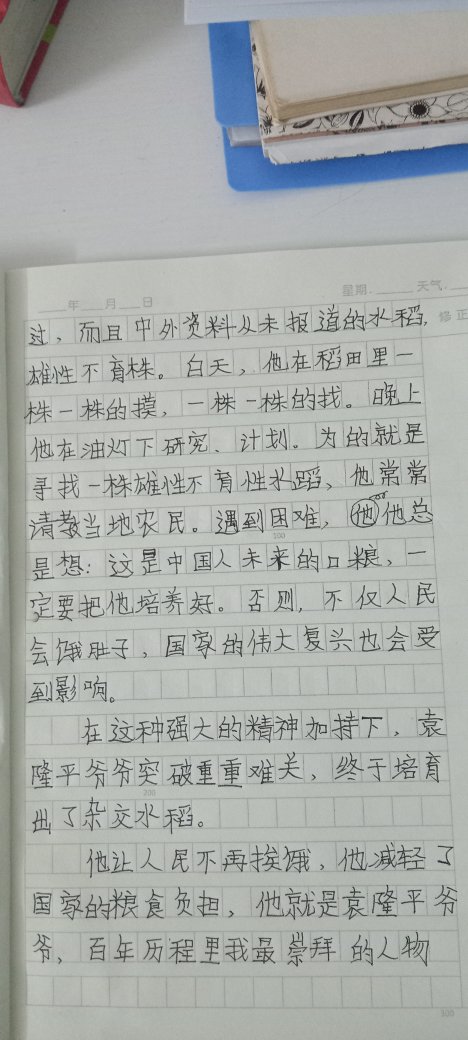 年 月 日 星期 天气
修正
过，而且中外资料从未报道的水稻，
雄性不育株。白天，他在稻田里一
株一株的摸，一株一株的找。晚上
他在油灯下研究、计划。为的就是
寻找一株雄性不育性水蹈，他常常
请教当地农民。遇到困难，他他总
100
是想：这是中国人未来的口粮，一
定要把他培养好。否则，不仅人民
会饿肚子，国家的伟大复兴也会受
到影响。
在这种强大的精神加持下，袁
隆平爷爷突破重重难关，终于培育
200
出了杂交水稻。
他让人民不再挨饿，他减轻了
国家的粮食负担，他就是袁隆平爷
爷，百年历程里我最崇拜的人物
300